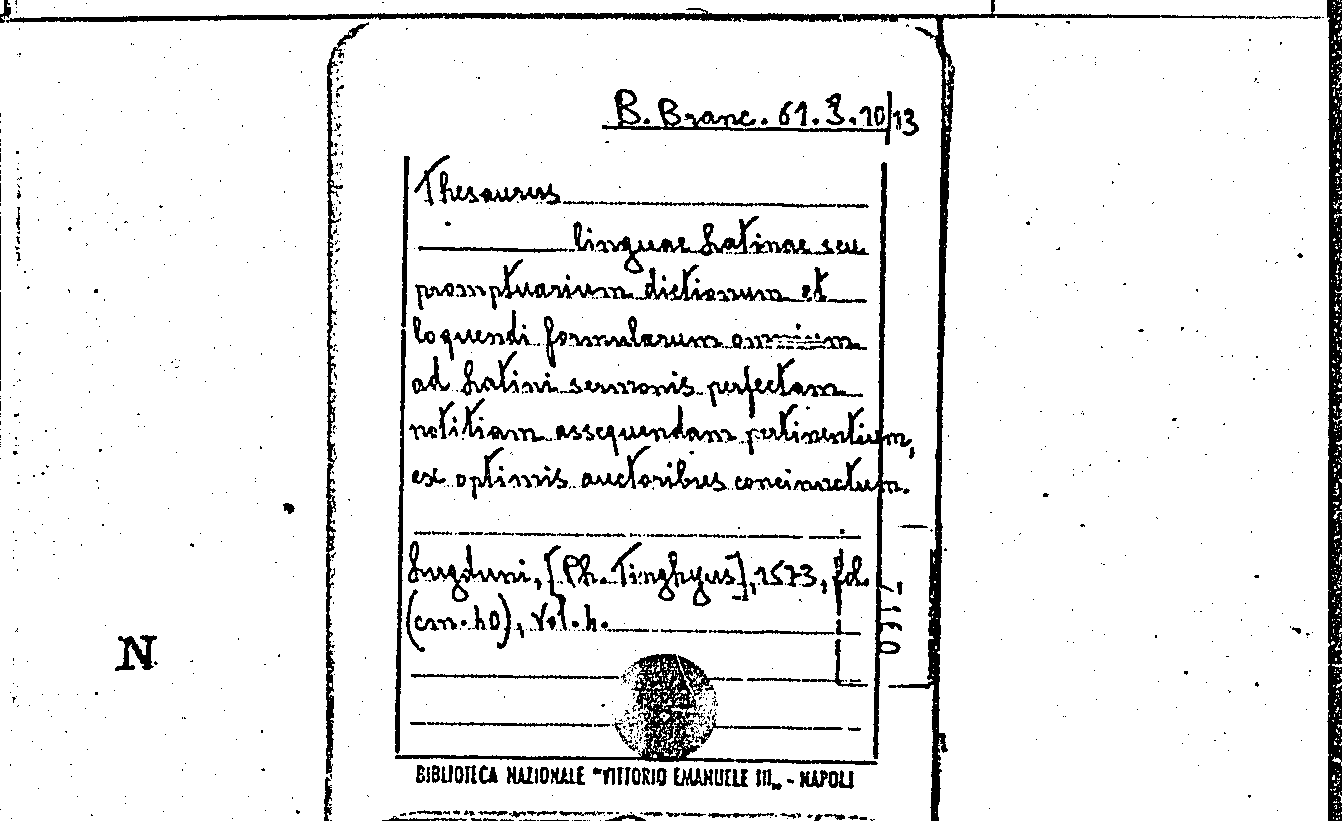 B. Branc. 61. 3. 10/13
Thesaurus
linguae Latinae seu
promptuarium dictionum et
loquendi formularum omnium
ad Latini sermonis perfectam
notitiam assequendam pertinentium,
ex optimis auctoribus concinnatum.
Lugduni, [Ph. Tinghyus], 1573, fol.
(cm. 40), vol. 4.
7160
N
BIBLIOTECA NAZIONALE "VITTORIO EMANUELE III„ - NAPOLI